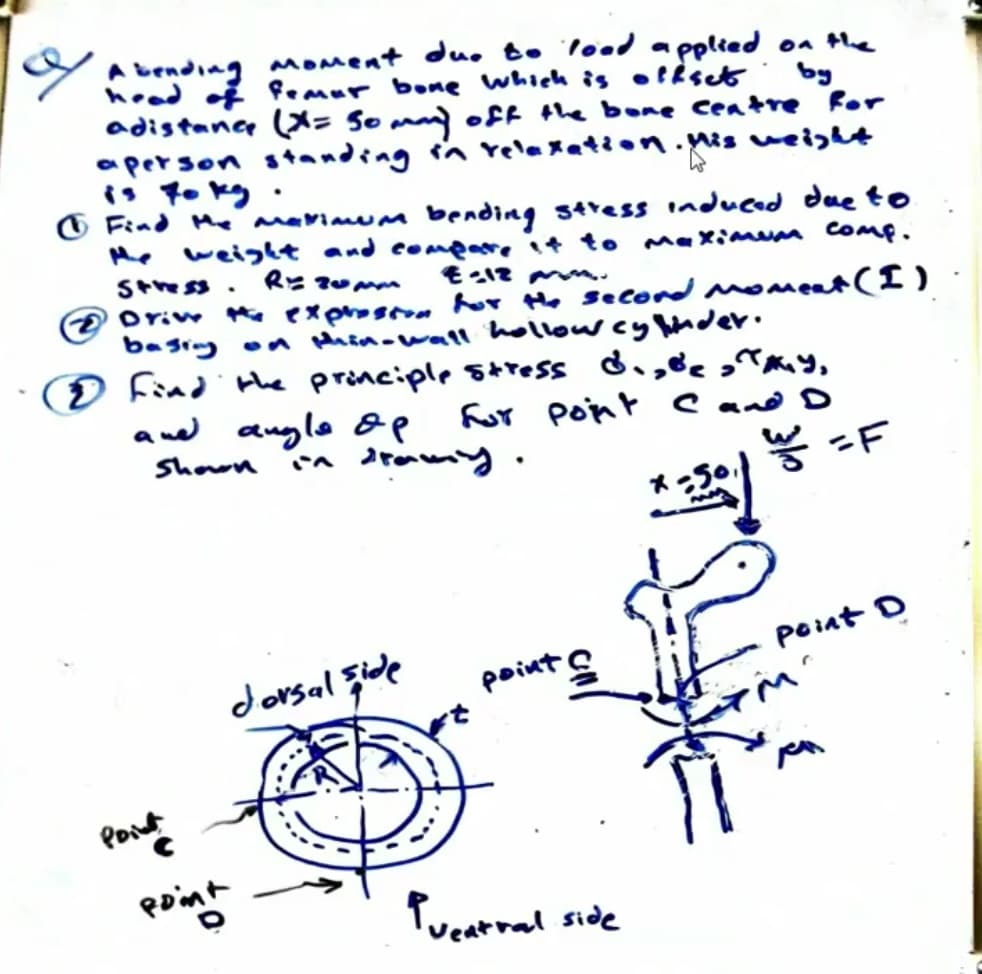 Q/ A bending moment due to load applied on the
head of femur bone which is offsets by
a distance (X= 50 mm) off the bone centre for
a person standing in relaxation. His weight
is 70 kg.
① Find the maximum bending stress induced due to
the weight and compare it to maximum comp.
stress. R= 20mm t=12 mm.
② Drive the expression for the second moment (I)
basing on thin-wall hollow cylinder.
find the principle stress
and angle θp for point C and D
shown in drawing.
x=50 mm
= F
point D
point C
M
dorsal side
t
R
point C
point D
ventral side